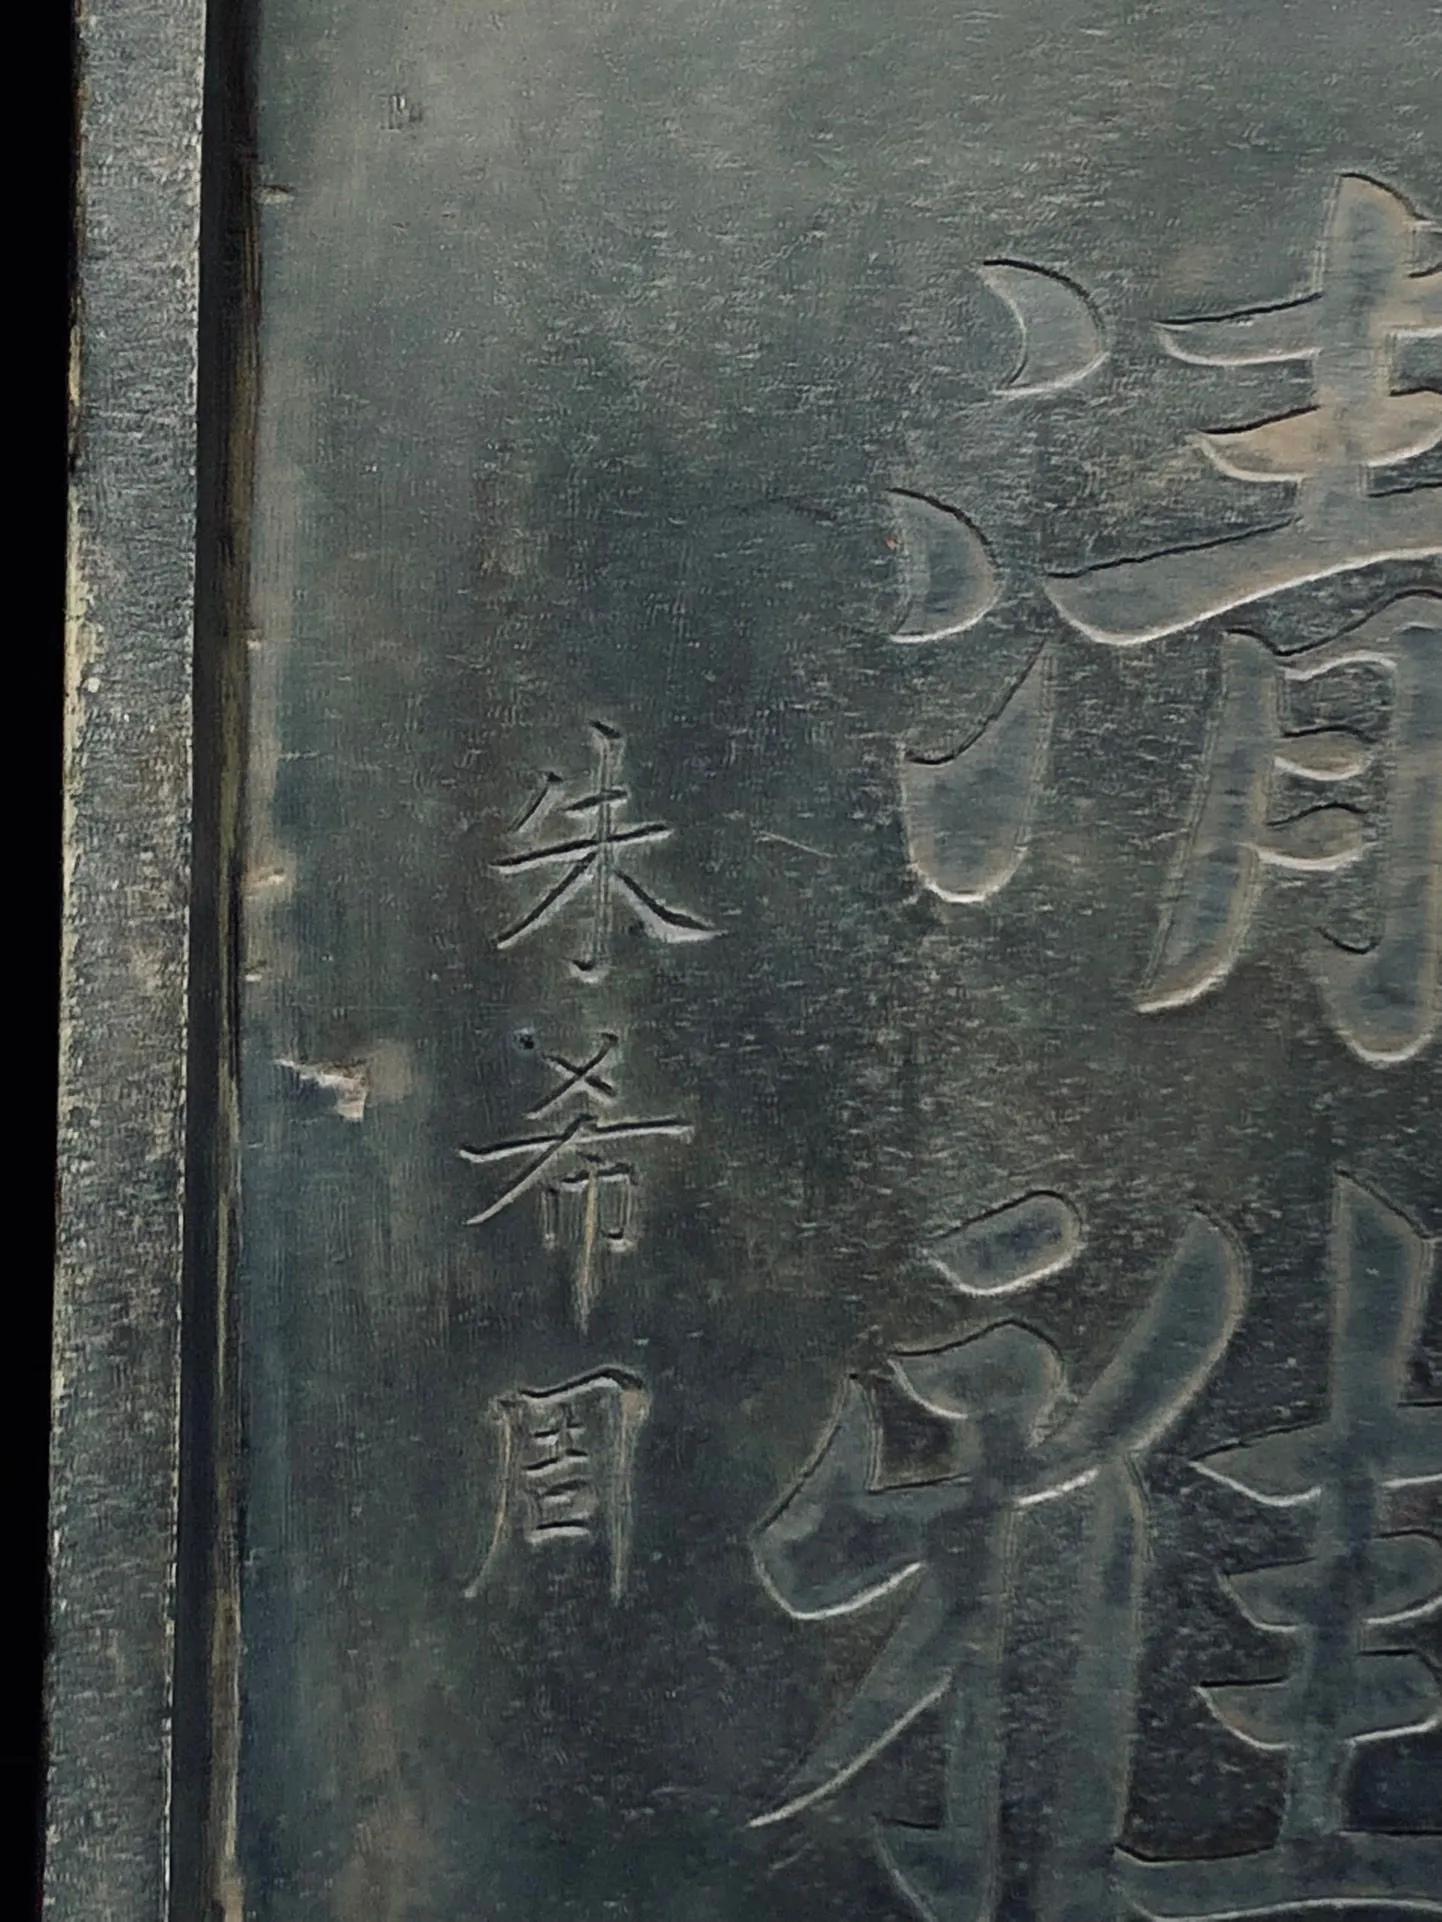 清雅
朱希周